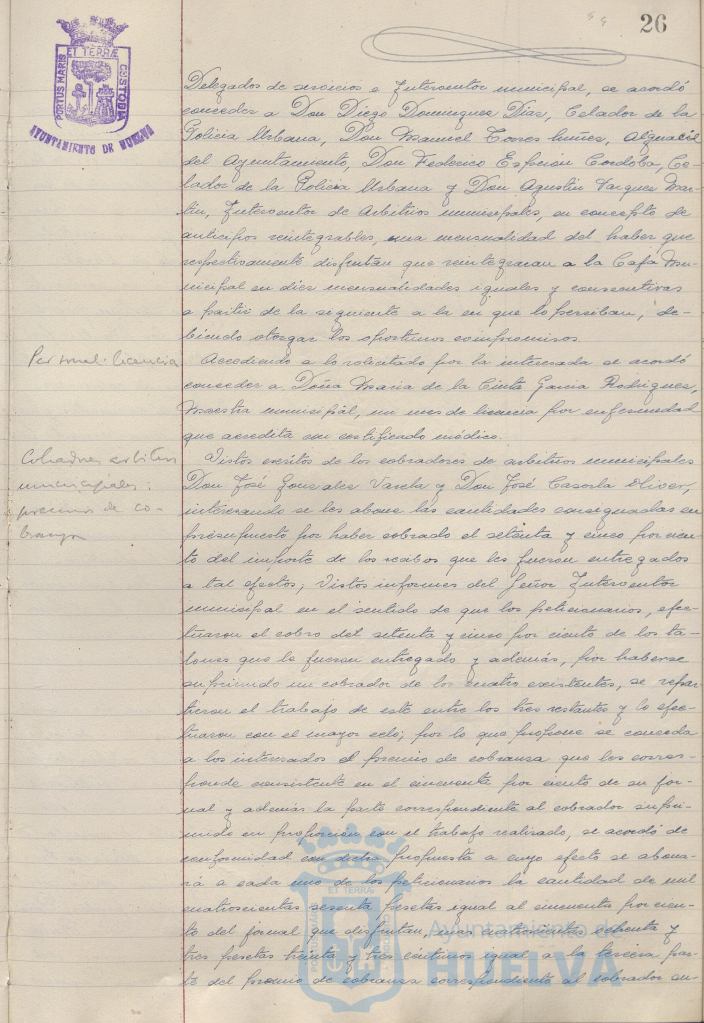 26
PORTUS MARIS ET TERRÆ CUSTODIA
AYUNTAMIENTO DE HUELVA
Delegados de servicios e Interventor municipal, se acordó
conceder a Don Diego Dominguez Dias, Celador de la
Policia Urbana, Don Manuel Torres Nuñez, Alguacil
del Ayuntamiento, Don Federico Cordóba, Ce-
lador de la Policia Urbana y Don Agustin Vazquez Mar-
tin, Interventor de Arbitrios municipales, en concepto de
anticipos reintegrables, una mensualidad del haber que
respectivamente disfrutan que reintegraran a la Caja Mu-
nicipal en diez mensualidades iguales y consecutivas
a partir de la siguiente a la en que lo perciban, de-
biendo otorgar los oportunos compromisos.
Personal. licencia
Accediendo a lo solicitado por la interesada se acordó
conceder a Doña Maria de la Cinta Garcia Rodriguez,
Maestra municipal, un mes de licencia por enfermedad
que acredita con certificado médico.
Cobradores arbitrios
municipales:
premio de co-
branza
Vistos escritos de los cobradores de arbitrios municipales
Don José Gonzalez Varela y Don José Casorla Oliver,
interesando se les abone las cantidades consignadas en
presupuesto por haber cobrado el setenta y cinco por cien-
to del importe de los recibos que les fueron entregados
a tal efectos; Vistos informes del Señor Interventor
municipal en el sentido de que los peticionarios, efec-
tuaron el cobro del setenta y cinco por ciento de los ta-
lones que le fueron entregado y además, por haberse
suprimido un cobrador de los cuatro existentes, se repar-
tieron el trabajo de este entre los tres restantes y lo efec-
tuaron con el mayor celo; por lo que propone se conceda
a los interesados el premio de cobranza que les corres-
ponde consistente en el cincuenta por ciento de su jor-
nal y además la parte correspondiente al cobrador supri-
mido en proporción con el trabajo realizado, se acordó de
conformidad con dicha propuesta a cuyo efecto se abona-
rá a cada uno de los peticionarios la cantidad de mil
cuatrocientas sesenta pesetas igual al cincuenta por cien-
to del jornal que disfrutan, mas cuatrocientas ochenta y
tres pesetas treinta y tres céntimos igual a la tercera par-
te del premio de cobranza correspondiente al cobrador su-
Ayuntamiento de
HUELVA